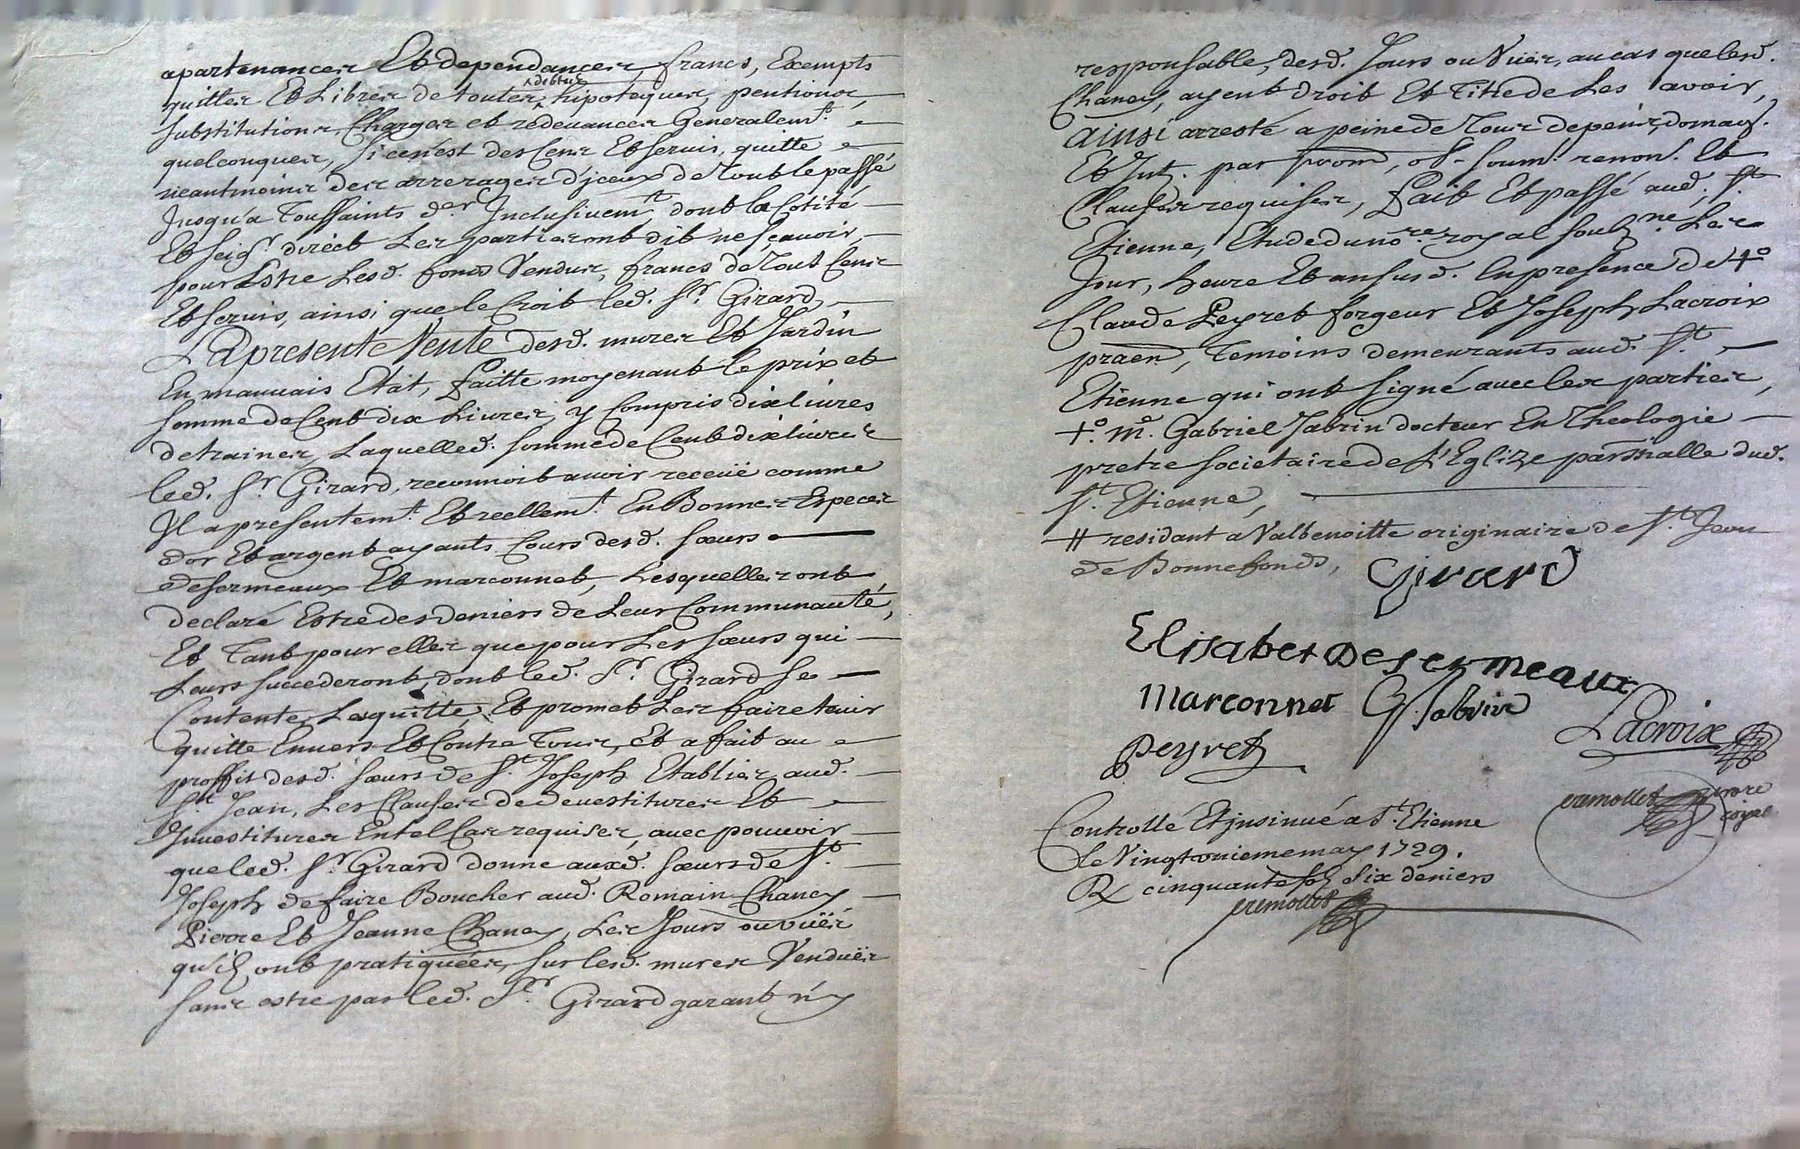 apartenances Et dependances, francs, Exempts
quittes Et Libres de toutes debtes hipoteques, pentions,
substitutions, Charges et redevances Generalemt.
quelconques, si ce n'est des Cens Et servis, quitte
neantmoins des arrerages d'jceux de Tout le passé
Jusqu'a Toussaints der Inclusivemt, dont la Cotité
Et seigr. direct Les parties ont dit ne sçavoir,
pour Estre Lesd. fonds Vendus, francs de Tout Cens
Et servis, ainsi que le Croit led. Sr. Girard,
La presente Vente desd. mures Et Jardin
En mauvais Etat, faitte moyenant le prix et
somme de Cent dix Livres, y Compris dix livres
detraines, Laquelle d. somme de Cent dix livres
led. Sr. Girard, reconnoit avoir receüe comme
Il a presentemt. Et reellemt. En Bonnes Especes
d'or Et argent ayants Cours desd. Sœurs
desermeaux Et marconnet, Lesquelles ont
declaré Estre des deniers de Leur Communauté,
Et Tant pour elles que pour Les sœurs qui
Leurs succederont, dont led. Sr. Girard se
Contente, Les quitte, Et promet Les faire tenir
quitte Envers Et Contre Tous, et a fait au
proffit desd. sœurs de St. Joseph Etablies aud.
St. Jean, Les Clauses de devestitures Et
Jnvestitures En tel Cas requises, avec pouvoir
que led. Sr. Girard donne auxd. sœurs de St.
Joseph de faire Boucher aud. Romain Chaney
Pierre Et Jeanne Chaney, Les Jours ou vües
qu'ils ont pratiquées, sur lesd. mures Vendües
sans estre par led. Sr. Girard garant n'y
responsable, desd. Jours ou Vües, au cas que lesd.
Chaney, ayent droit Et Titre de Les avoir,
ainsi arresté a peine de Tous depens, domag.
Et Jnt. par prom, ob. soum. renon. Et
Clauses requises, fait Et passé aud. St.
Etienne, Etude du nore. royal soubzne. Les
Jour, heure Et an susd. En presence de +°
Claude Peyret forgeur Et Joseph Lacroix
praen, Temoins demeurants aud. St.
Etienne qui ont signé avec les parties,
+° Me. Gabriel Jabrin docteur En Theologie
pretre societaire de L'Eglize parsialle dud.
St. Etienne,
# residant a Valbenoitte originaire de St. Jean
de Bonnefonds,
Girard
Elisabet Desermeaux
Marconnet G. Jabrin
Lacroix
Peyret
eremollet
Controllé Et jnsinué a St. Etienne
le Vingt May 1729.
Rx cinquante six deniers
eremollet